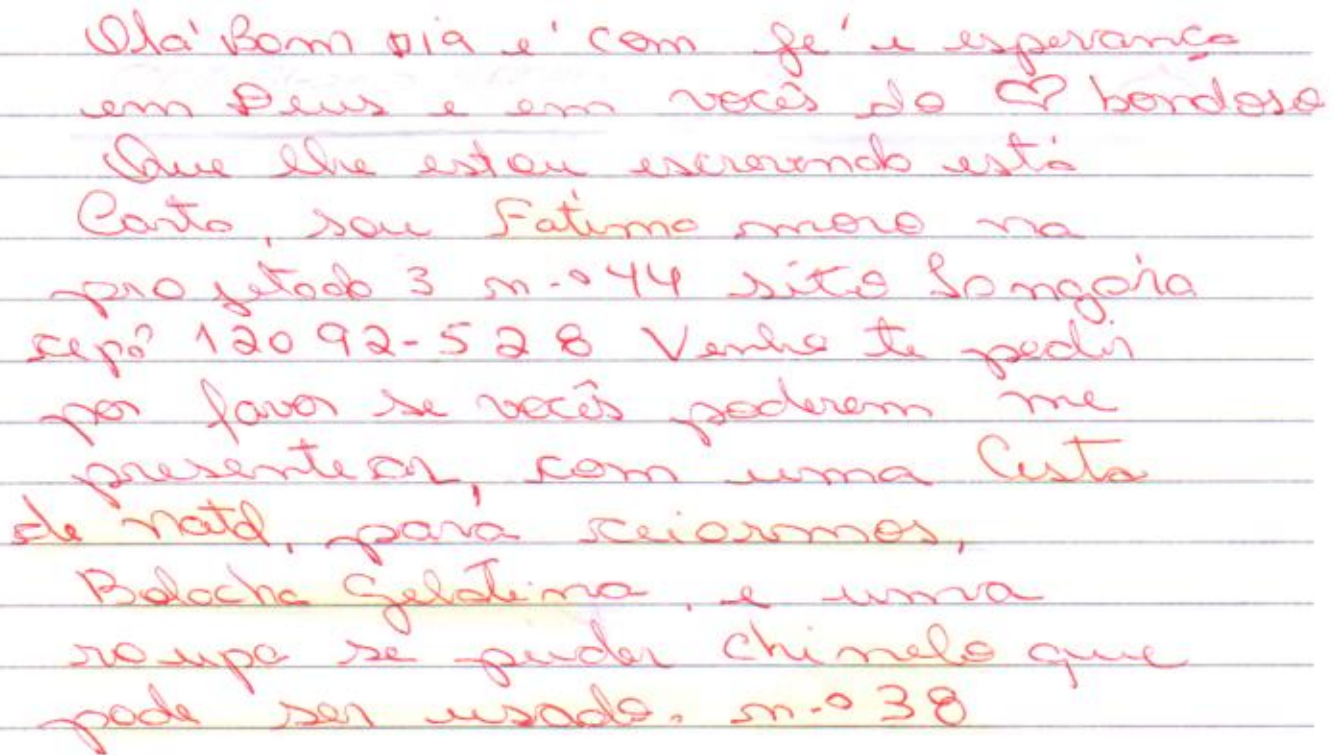 Olá Bom Dia e' com fe' e esperança
em Deus e em vocês do ♡ bondoso
Que lhe estou escrevendo está
Carta, sou Fatima moro na
projetado 3 n.º 44 sitio
cep: 12092-528 Venho te pedir
por favor se vocês poderem me
presentear, com uma Cesta
de natal, para ceiarmos,
Bolacha Gelatina, e uma
roupa se puder chinelo que
pode ser usado. n.º 38